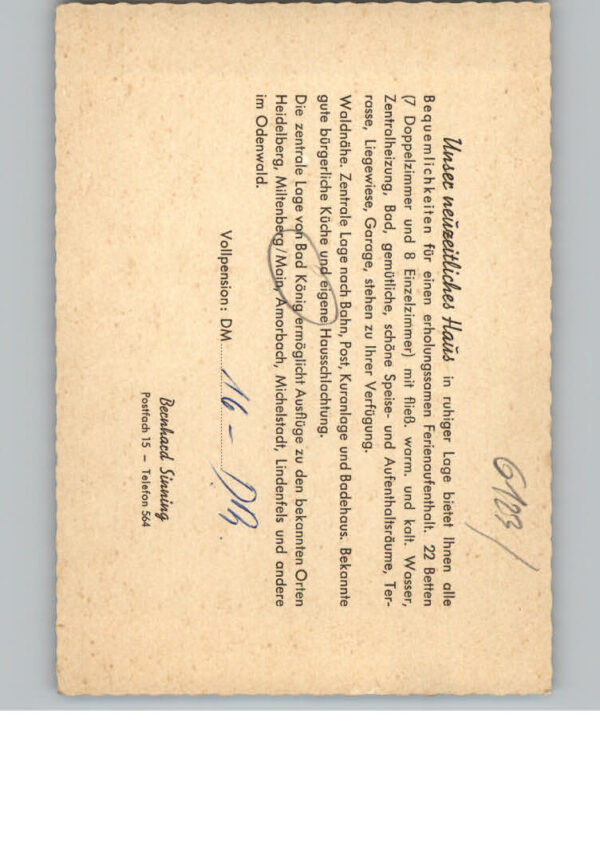 6123/
Unser neuzeitliches Haus in ruhiger Lage bietet Ihnen alle
Bequemlichkeiten für einen erholungssamen Ferienaufenthalt. 22 Betten
(7 Doppelzimmer und 8 Einzelzimmer) mit fließ. warm. und kalt. Wasser,
Zentralheizung, Bad, gemütliche, schöne Speise- und Aufenthaltsräume, Ter-
rasse, Liegewiese, Garage, stehen zu Ihrer Verfügung.
Waldnähe. Zentrale Lage nach Bahn, Post, Kuranlage und Badehaus. Bekannte
gute bürgerliche Küche und eigene Hausschlachtung.
Die zentrale Lage von Bad König ermöglicht Ausflüge zu den bekannten Orten
Heidelberg, Miltenberg/Main, Amorbach, Michelstadt, Lindenfels und andere
im Odenwald.
Vollpension: DM 16 –
Bernhard Sinning
Postfach 15 – Telefon 564